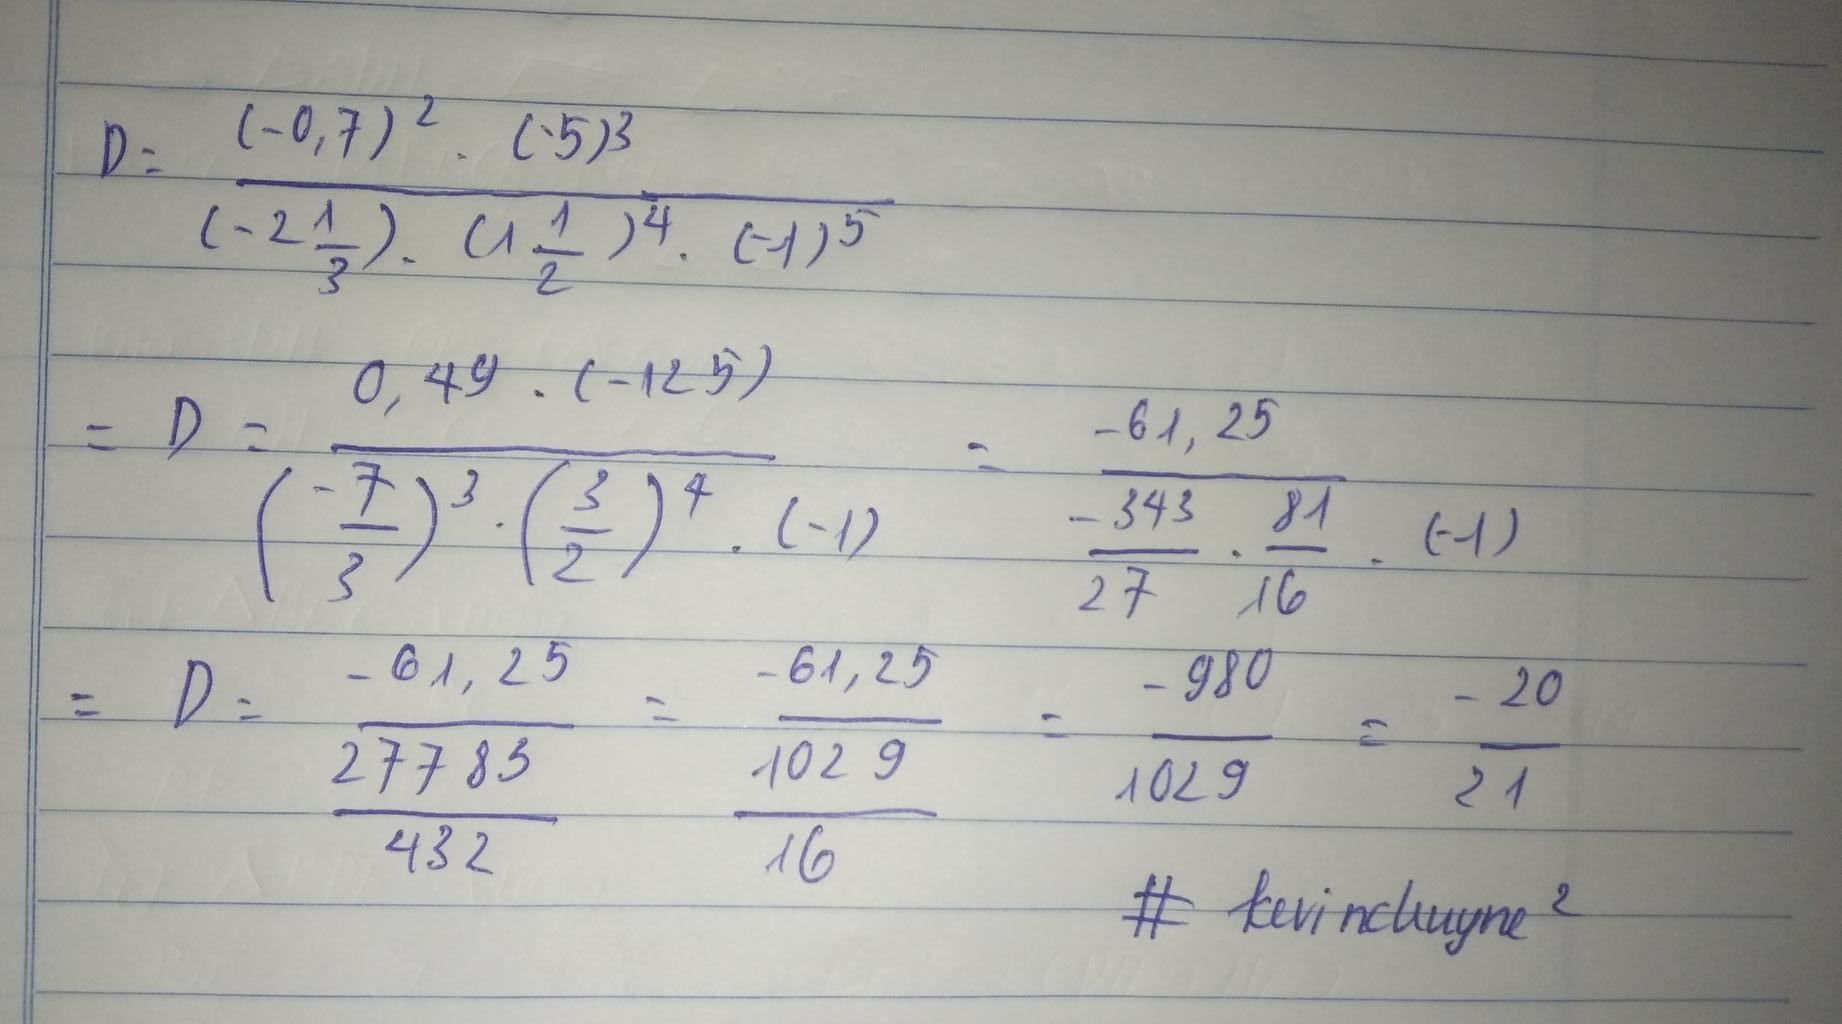 D = \frac{(-0,7)^2 . (-5)^3}{(-2\frac{1}{3}) . (1\frac{1}{2})^4 . (-1)^5}
= D = \frac{0,49 . (-125)}{(\frac{-7}{3})^3 . (\frac{3}{2})^4 . (-1)} = \frac{-61,25}{\frac{-343}{27} . \frac{81}{16} . (-1)}
= D = \frac{-61,25}{\frac{27783}{432}} = \frac{-61,25}{\frac{1029}{16}} = \frac{-980}{1029} = \frac{-20}{21}